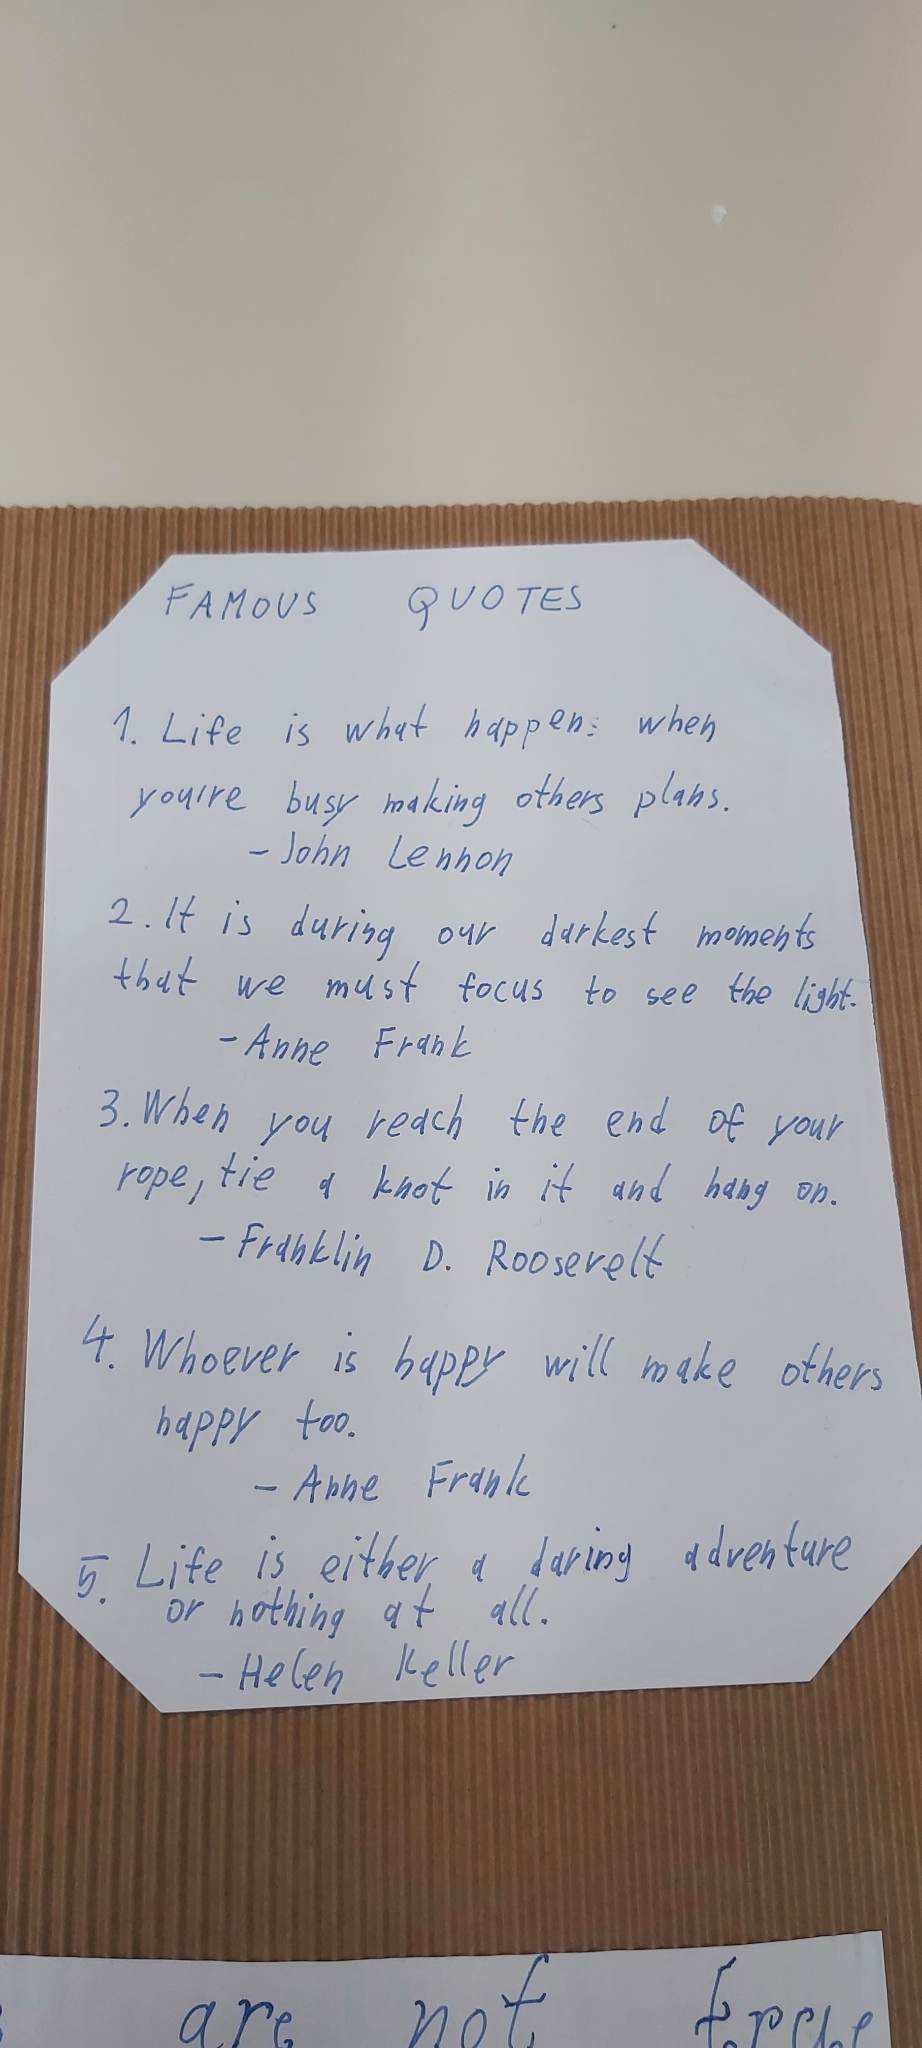 FAMOUS QUOTES
1. Life is what happens when
you're busy making others plans.
- John Lennon
2. It is during our darkest moments
that we must focus to see the light.
- Anne Frank
3. When you reach the end of your
rope, tie a knot in it and hang on.
- Franklin D. Roosevelt
4. Whoever is happy will make others
happy too.
- Anne Frank
5. Life is either a daring adventure
or nothing at all.
- Helen Keller
are not